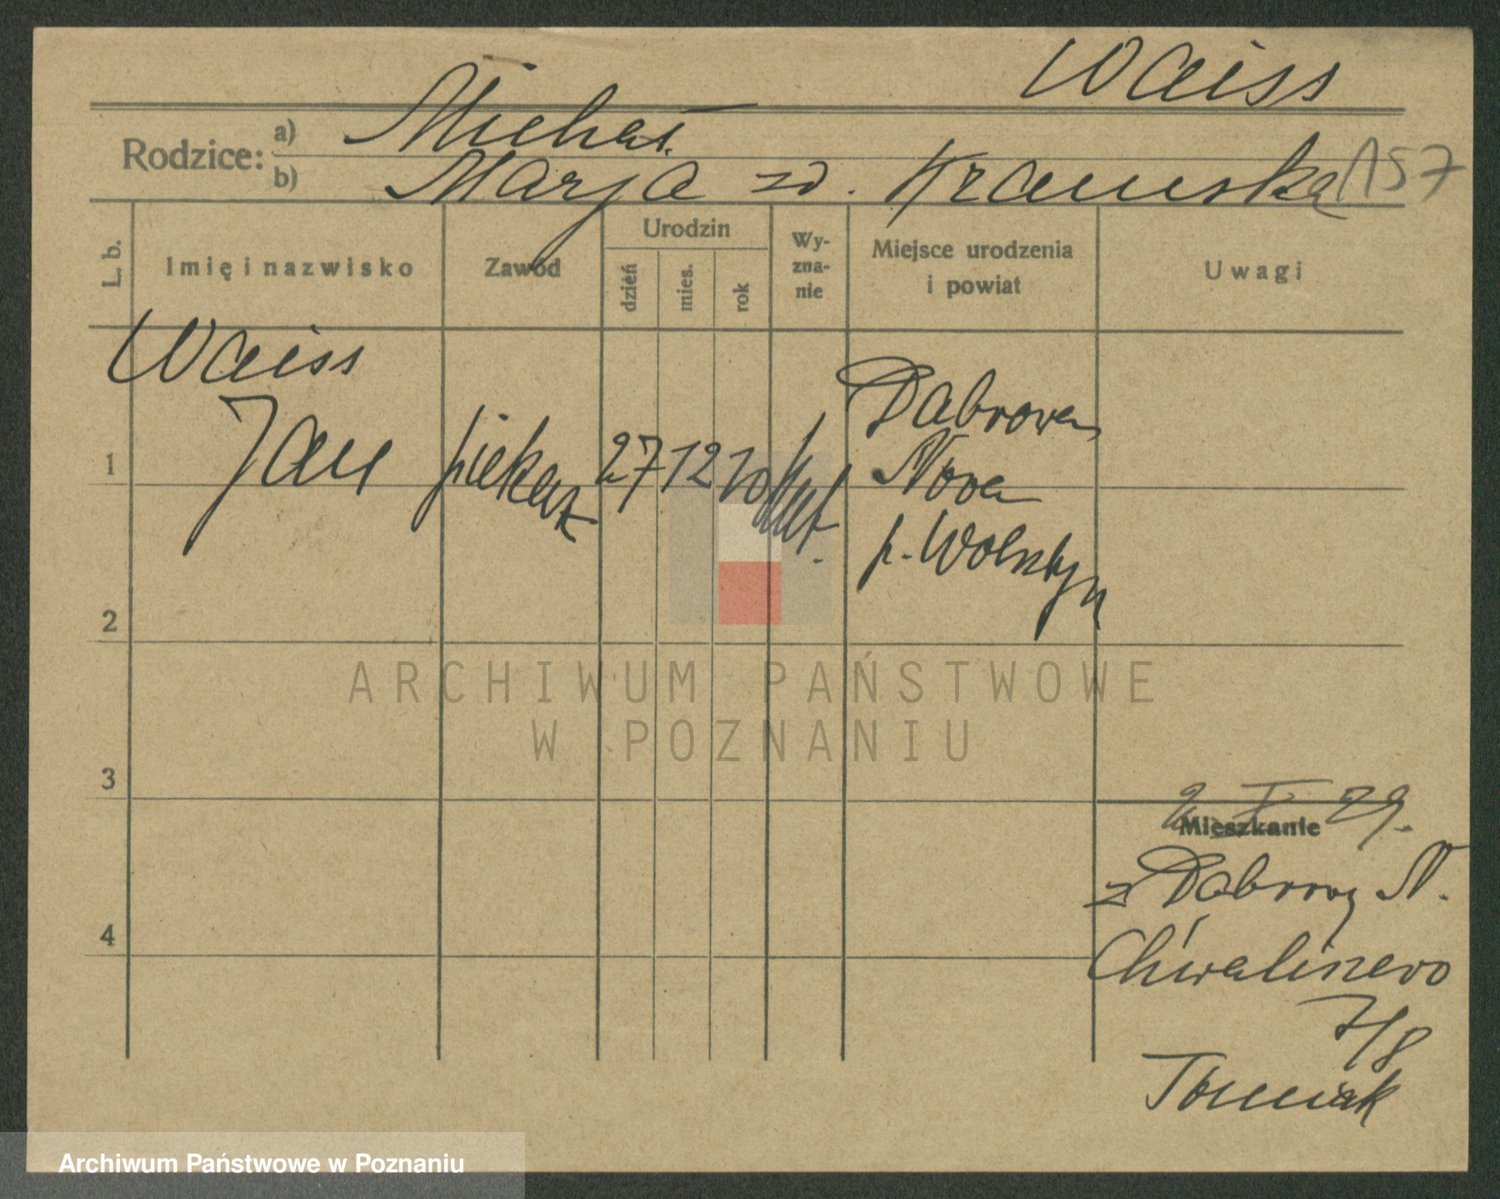 Waiss
Rodzice:
a) Michał
b) Marja zd. Kramska
157
L. b.
Imię i nazwisko
Zawód
Urodzin
dzień
mies.
rok
Wy-
zna-
nie
Miejsce urodzenia
i powiat
Uwagi
Waiss
Jan
piekarz
27 12 10
Dabrowa
Nowa
p. Wolsztyn
1
2
3
4
2. X 29.
Mieszkanie
z Dabrowy N.
Chwaliszewo
7/8
Tomiak
ARCHIWUM PAŃSTWOWE
W POZNANIU
Archiwum Państwowe w Poznaniu